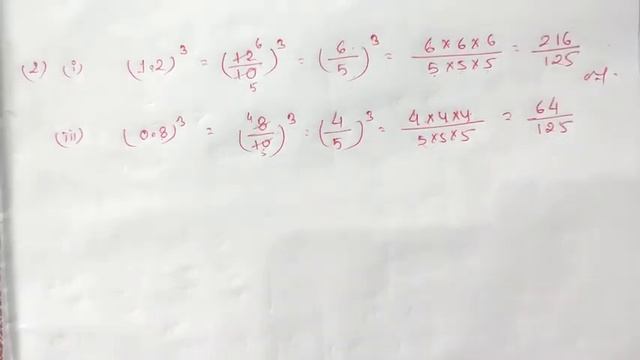 (2) (i) (1.2)³ = (12⁶/10₅)³ = (6/5)³ = 6×6×6/5×5×5 = 216/125
(iii) (0.8)³ = (⁴8/10₅)³ = (4/5)³ = 4×4×4/5×5×5 = 64/125